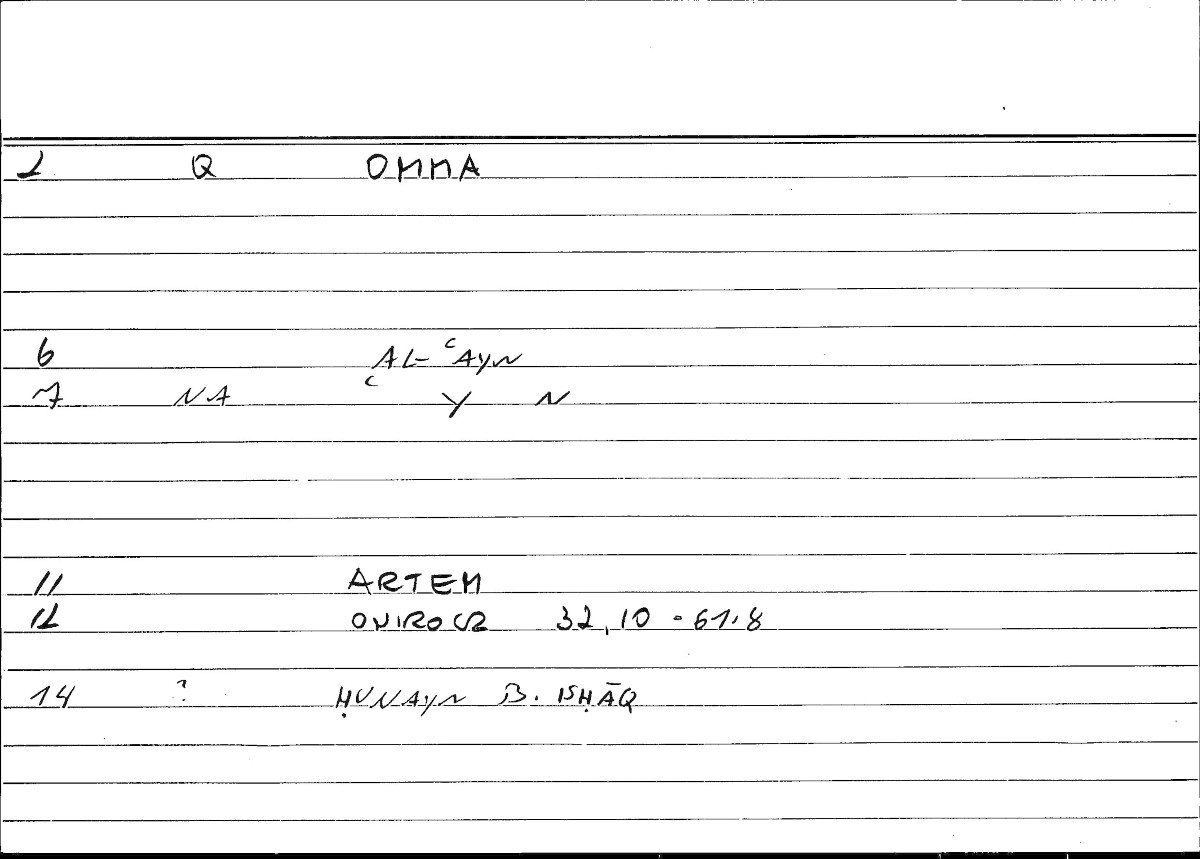 2 Q OMMA
6 AL-ʿAYN
7 NA ʿ Y N
11 ARTEM
12 ONIROCR 32,10-61.8
14 ? ḤUNAYN B. ISḤĀQ